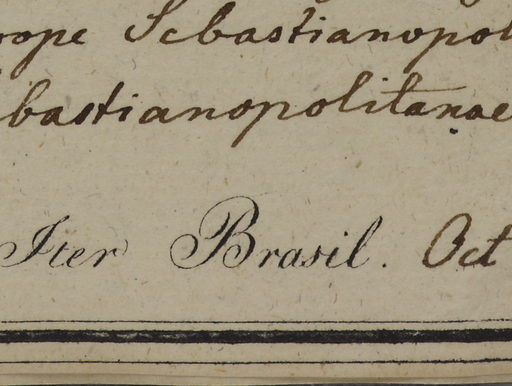 prope Sebastianopol
bastianopolitanae
Iter Brasil. Oct